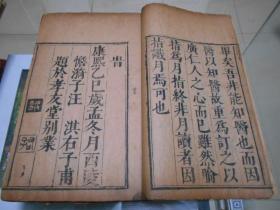 畢矣吾非能知醫也而因
醫以知醫故重為可之以
廣仁人之心而已雖然喻
指為月指終非月讀者因
指識月焉可也
旹
康熙乙巳歲孟冬月西陵
憺漪子汪淇右子甫
題於孝友堂別業